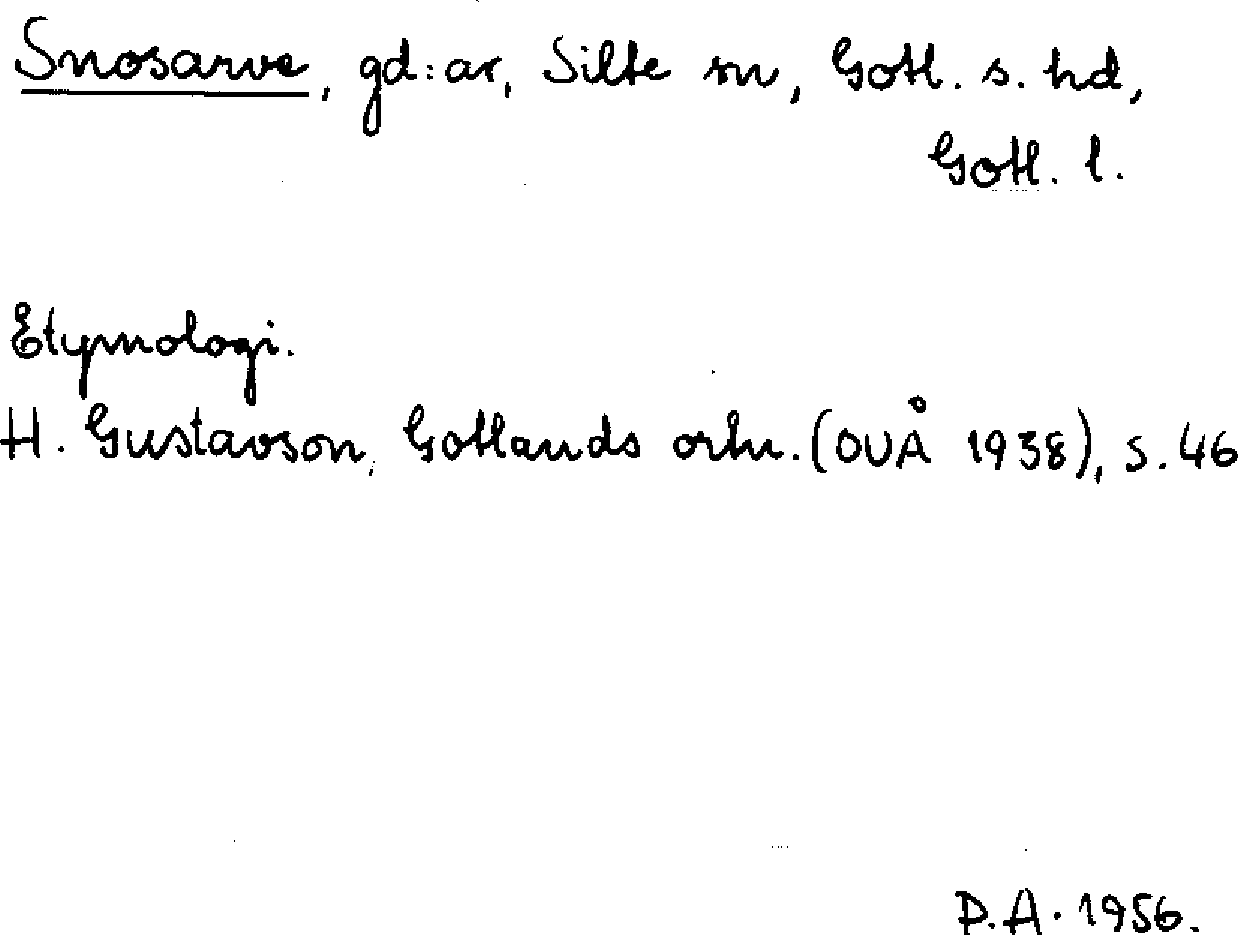 Snosarve, gd:ar, Silte sn, Gotl. s. hd,
Gotl. l.
Etymologi.
H. Gustavson, Gotlands ortn. (OUÅ 1938), s. 46
P.A. 1956.